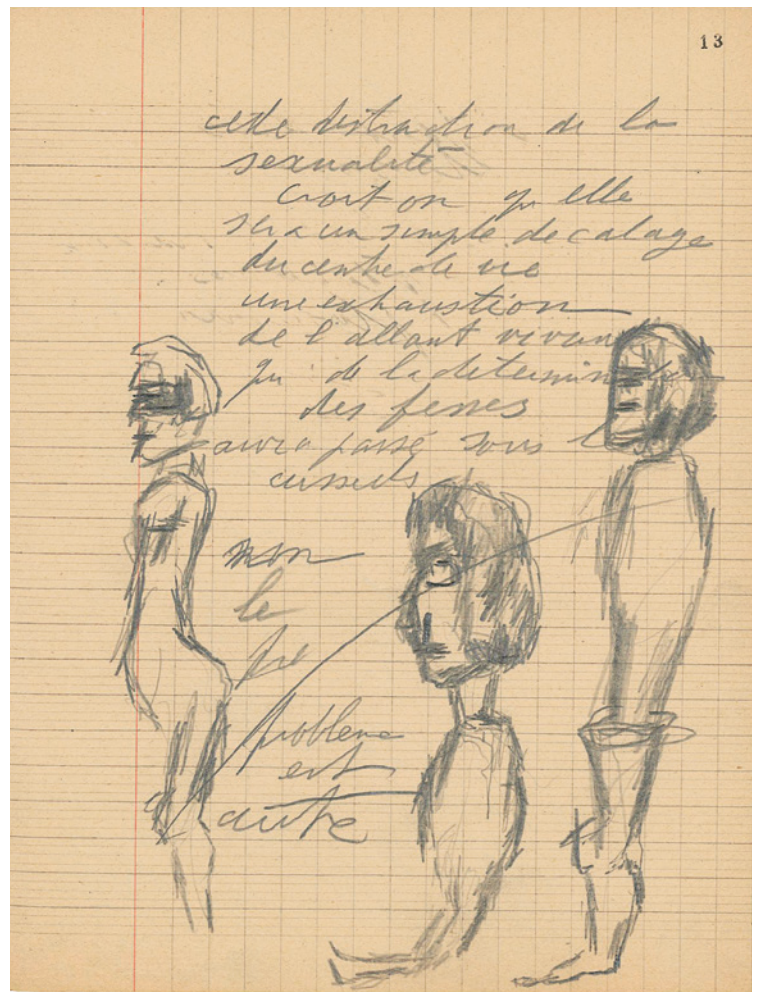 13
cette distraction de la
sexualité
Croit on qu elle
sera un simple decalage
du centre de vie
une exhaustion
de l allant vivant
qui de la determination
des fesses
aura passé sous l
non
le
probleme
est
autre